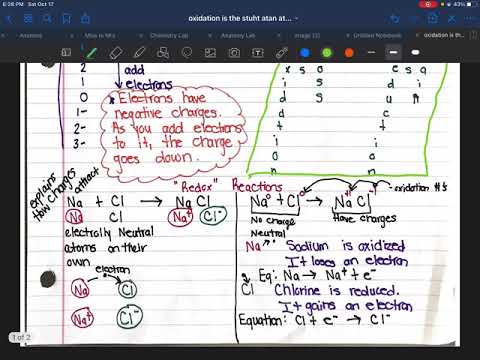 6:26 PM Sat Oct 17
43%
oxidation is the stuht atan at...
Anatomy
Miss to Mrs
Chemistry Lab
Anatomy Lab
image (3)
Untitled Notebook
oxidation is th...
2
1
0
1-
2-
3-
add
electrons
* Electrons have
negative charges.
As you add electrons
to it, the charge
goes down.
x s o
i s
d s
d
t
i
o
n
e s a
d i
u n
c
t
i
o
n
explains
How Charges
attract
"Redox" Reactions
Na + Cl → Na Cl
Na Cl Na+ Cl-
electrically Neutral
atoms on their
own
electron
Na Cl
Na+ Cl-
Na⁰ + Cl⁰ → Na+1 Cl-1
oxidation #s
No charge
Neutral
Have charges
Na Sodium is oxidized
It loses an electron
Eq: Na → Na+ + e-
Cl Chlorine is reduced.
It gains an electron
Equation: Cl + e- → Cl-
1 of 2